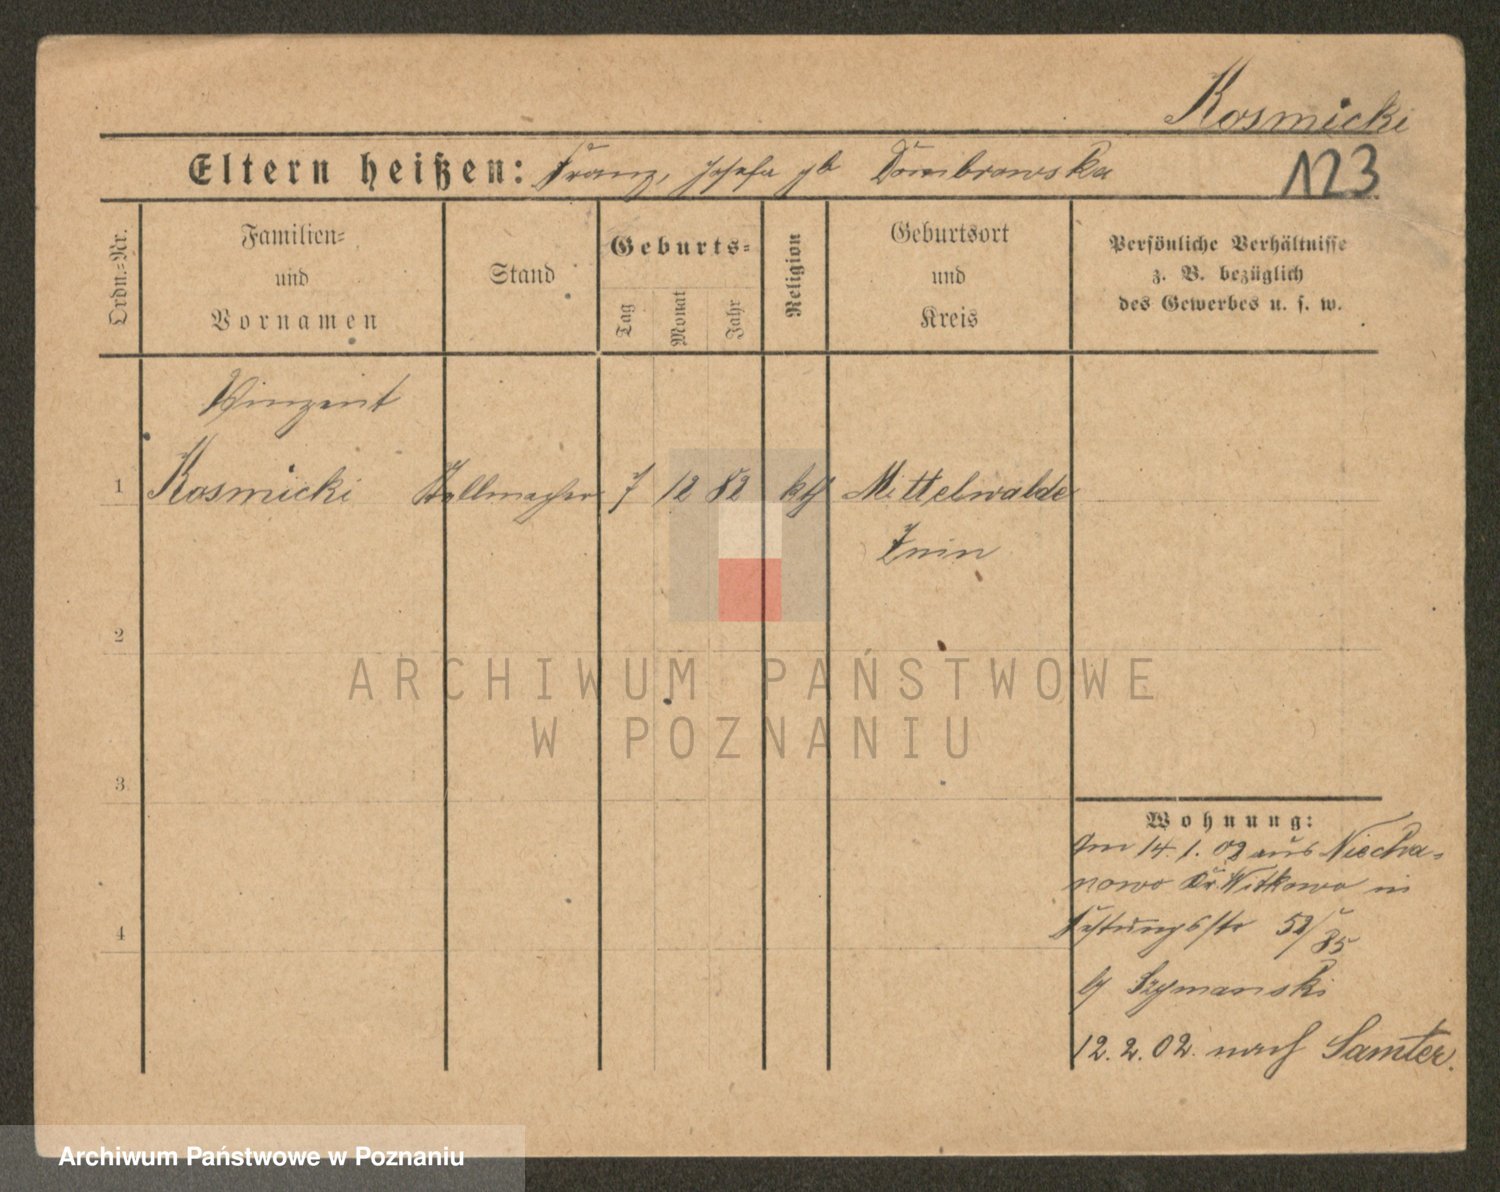 Kosmicki
Eltern heißen: Franz, Josefa gb Dombrowska
123
Ordn.=Nr.
Familien=
und
Vornamen
Stand
Geburts=
Tag
Monat
Jahr
Religion
Geburtsort
und
Kreis
Persönliche Verhältnisse
z. B. bezüglich
des Gewerbes u. s. w.
Vinzent
1 Kosmicki Stellmacher 7 12 82 kth Mittelwalde
Znin
2
3.
4
Wohnung:
Am 14.1.02 aus Niecha=
nowo Kr. Witkowo in
Festungsstr 52/85
b/ Szymanski
12.2.02. nach Samter.
ARCHIWUM PAŃSTWOWE
W POZNANIU
Archiwum Państwowe w Poznaniu